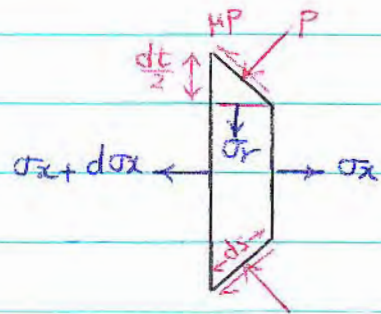 μP P
dt/2
σr
σx + dσx σx
ds